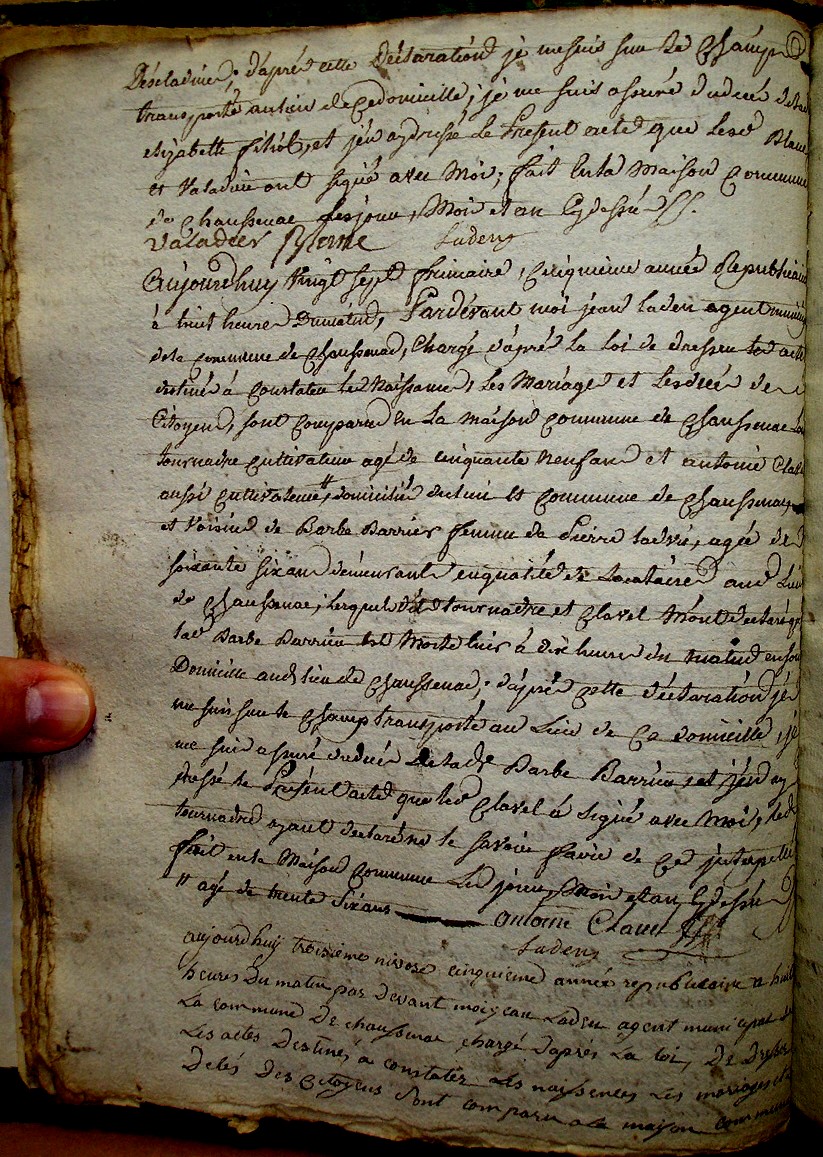 Descladines; d'après cette Déclaration je me suis sur le Champ
transporté au lieu de ce domicille; je me suis assuré du décés de
elizabette filiol, et j'en ay dressé Le Present acte que lesd Blanc
et Valadier ont signé avec Moi; fait En la Maison Commune
de chaussenac Les jour, Mois et an Cy dessus
Valadier Blanc Laden
Aujourdhuy Vingt sept frimaire, Cinquieme année Republicaine
à huit heures Du matin, Pardevant moi jean laden agent municipal
de la Commune de Chaussenac, Chargé d'après la loi de dresser les actes
destinés à Constater les Naissances, les Mariages et les décés des
Citoyens, sont Comparus En la maison Commune de Chaussenac
tournadre Cultivateur agé de cinquante Neuf ans et antoine Clavel
aussi Cultivateur, domiciliés du lieu et Commune de Chaussenac,
et Voisins de Barbe Barrier femme de Pierre agée de
soixante six ans demeurant en qualité de Locataire aud Lieu
de Chaussenac; lesquels dits tournadre et Clavel M'ont declaré que
lad Barbe Barrier est Morte hier à dix heures du matin en son
Domicille aud lieu de Chaussenac; d'après cette déclaration je
me suis sur le Champ transporté au Lieu de Ce domicille, je
me suis assuré du décés de lad Barbe Barrier, et j'en ay
dressé le Présent acte que led Clavel à signé avec Moi, led
tournadre ayant declaré ne le savoir faire de Ce interpellé
fait en la Maison Commune Les jour, Mois et an Cy dessus
agé de trente six ans antoine Clavel
Laden
aujourdhuy troisieme nivose cinquieme année republicaine a huit
heures Du matin par devant moi jean Laden agent municipal de
La commune De chaussenac chargé D'après La loi, De Dresser
Les actes Destinés a constater Les naissences Les mariages et
Decés Des Citoyens Sont comparu a la maison commune